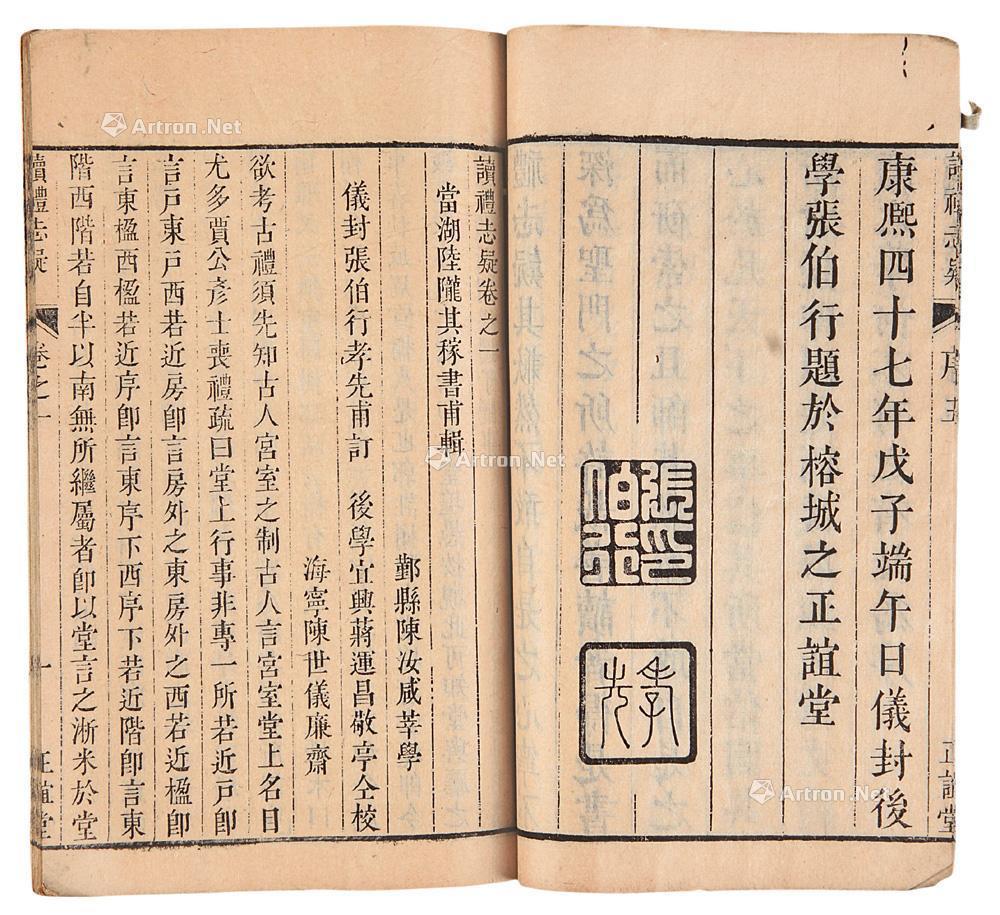 讀禮志疑
序五
正誼堂
康熙四十七年戊子端午日儀封後
學張伯行題於榕城之正誼堂
張伯行印
孝先
讀禮志疑卷之一
當湖陸隴其稼書甫輯
鄞縣陳汝咸莘學
儀封張伯行孝先甫訂 後學宜興蔣運昌敬亭仝校
海寧陳世儀廉齋
欲考古禮須先知古人宮室之制古人言宮室堂上名目
尤多賈公彥士喪禮疏曰堂上行事非專一所若近戸卽
言戸東戸西若近房卽言房外之東房外之西若近楹卽
言東楹西楹若近序卽言東序下西序下若近階卽言東
階西階若自半以南無所繼屬者卽以堂言之淅米於堂
讀禮志疑
卷之一
一
正誼堂
Artron.Net
Artron.Net
Artron.Net
Artron.Net